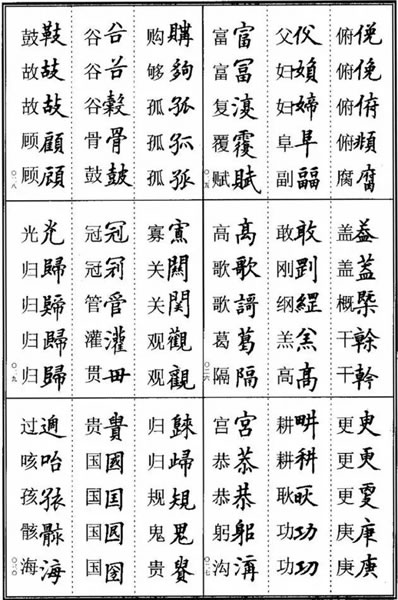 俯俛俯俛俯俯俯頫腐腐
父妇媍妇媂阜阜副
富富富冨复覆覆赋賦
盖盖蓋概干榦干幹
敢敢刚纲羔羔高髙
高高歌歌歌謌葛葛隔隔
更更更庚庚庚
耕畊耕耕耿功功功功
宫宫恭恭恭恭躬躳沟
购購够夠孤孤孤孤孤孤
谷谷谷谷榖骨骨鼓皷
鼓鼓故故故故顾顧顾顧
寡关關关関观觀观觀
冠冠冠管管灌灌贯毌
光光归歸归归歸归歸
归归规規鬼鬼贵
贵貴国國国囯国国圀
过咳咍孩孩骸骸海海
〇一五
〇一六
〇一七
〇一八
〇一九
〇二〇